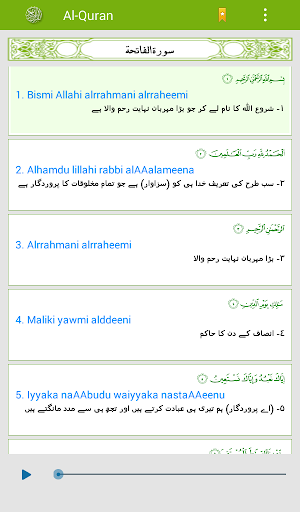 Al-Quran
سورة الفاتحة
بِسْمِ اللَّهِ الرَّحْمَٰنِ الرَّحِيمِ
1. Bismi Allahi alrrahmani alrraheemi
١- شروع الله کا نام لے کر جو بڑا مہربان نہایت رحم والا ہے
الْحَمْدُ لِلَّهِ رَبِّ الْعَالَمِينَ
2. Alhamdu lillahi rabbi alAAalameena
٢- سب طرح کی تعریف خدا ہی کو (سزاوار) ہے جو تمام مخلوقات کا پروردگار ہے
الرَّحْمَٰنِ الرَّحِيمِ
3. Alrrahmani alrraheemi
٣- بڑا مہربان نہایت رحم والا
مَالِكِ يَوْمِ الدِّينِ
4. Maliki yawmi alddeeni
٤- انصاف کے دن کا حاکم
إِيَّاكَ نَعْبُدُ وَإِيَّاكَ نَسْتَعِينُ
5. Iyyaka naAAbudu waiyyaka nastaAAeenu
٥- (اے پروردگار) ہم تیری ہی عبادت کرتے ہیں اور تجھ ہی سے مدد مانگتے ہیں